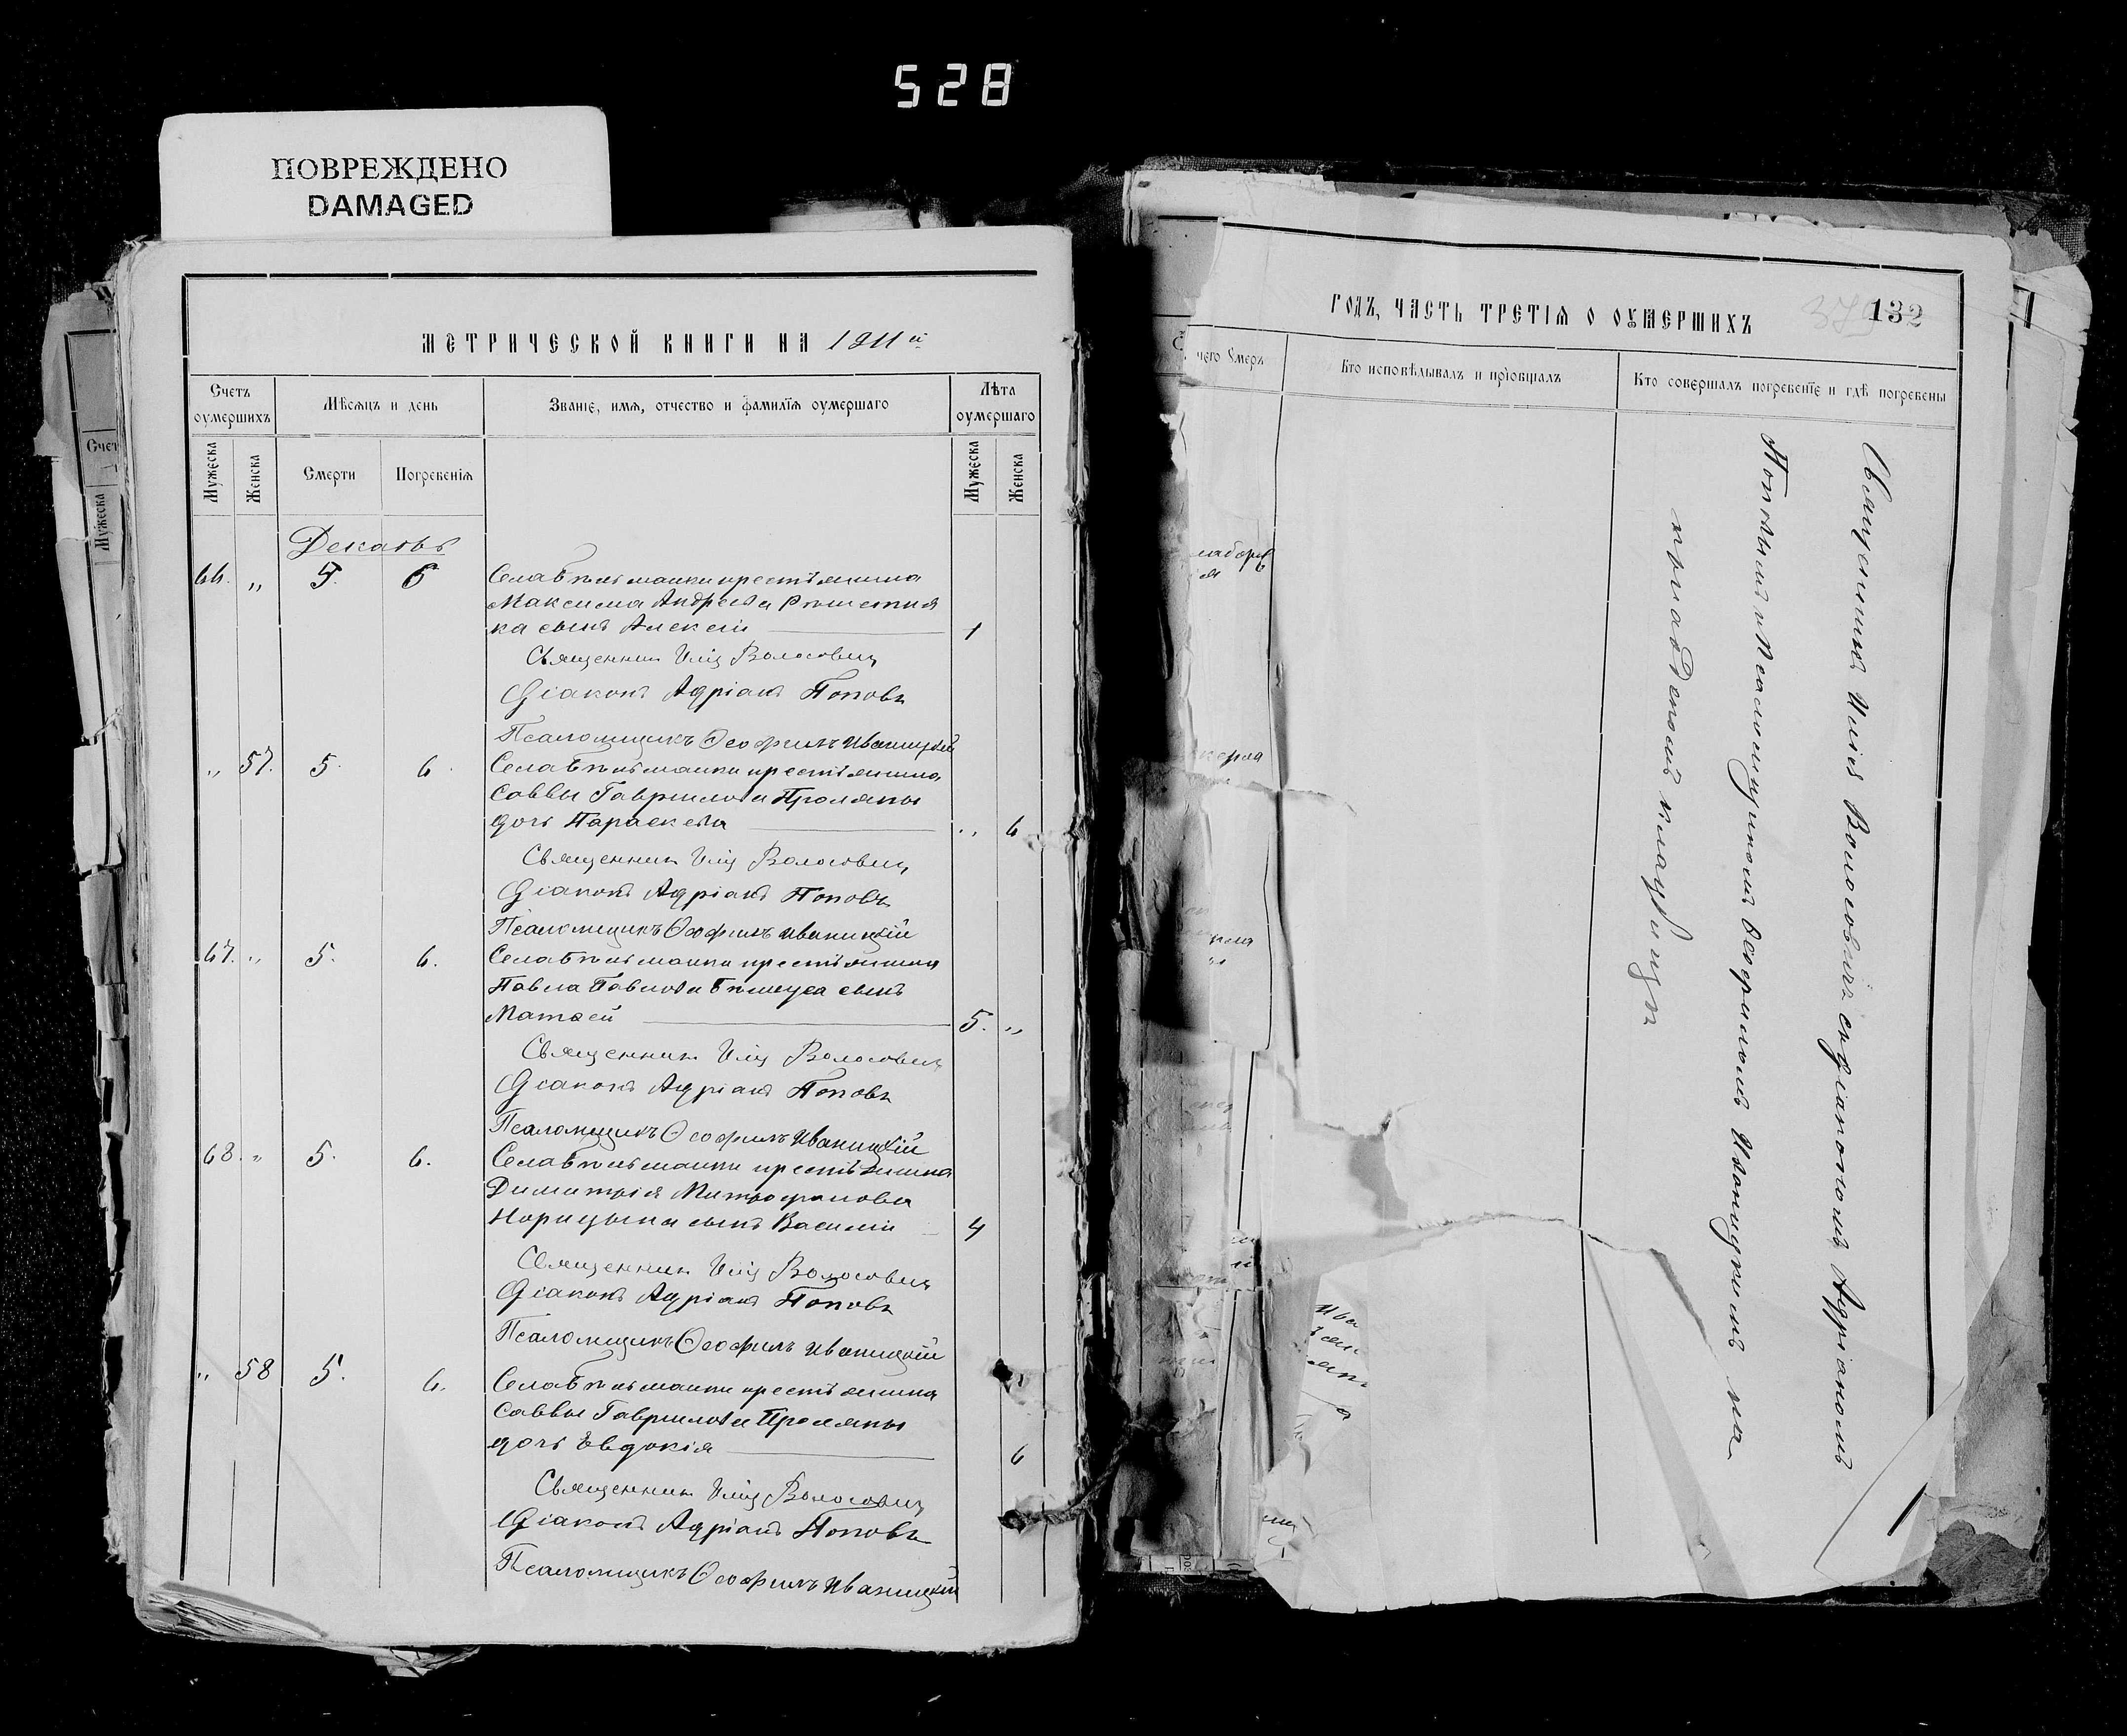 528
ПОВРЕЖДЕНО
DAMAGED
МЕТРИЧЕСКОЙ КНИГИ НА 1911й
Счетъ оумершихъ
Мѣсяцъ и день
Званіе, имя, отчество и фамилія оумершаго
Лѣта оумершаго
Мужеска
Женска
Смерти
Погребенія
Мужеска
Женска
Декабрь
66. „ 5. 6
Села крестьянина
Максима Андреева Рѣшетня
ка сынъ Алексій 1
Священник Илія Волосович
Діаконъ Адріанъ Поповъ
Псаломщикъ Ѳеофилъ Иваницкій
„ 57. 5. 6. Села крестьянина
Саввы Гаврилова
дочь Параскева „ 6
Священник Илія Волосович
Діаконъ Адріанъ Поповъ
Псаломщикъ Ѳеофилъ Иваницкій
67. „ 5. 6. Села крестьянина
Павла Павлова сынъ
Матѳей 5. „
Священник Илія Волосович
Діаконъ Адріанъ Поповъ
Псаломщикъ Ѳеофилъ Иваницкій
68. „ 5. 6. Села крестьянина
Димитрія Митрофанова
сынъ Василій 4
Священник Илія Волосович
Діаконъ Адріанъ Поповъ
Псаломщикъ Ѳеофилъ Иваницкій
„ 58 5. 6. Села крестьянина
Саввы Гаврилова
дочь Евдокія 6
Священник Илія Волосович
Діаконъ Адріанъ Поповъ
Псаломщикъ Ѳеофилъ Иваницкій
ГОДЪ, ЧАСТЬ ТРЕТІЯ О ОУМЕРШИХЪ
132
чего Смерь
Кто исповѣдывалъ и пріобщалъ
Кто совершалъ погребеніе и гдѣ погребены
Священникъ Илія Волосовичъ съ діакономъ Адріаномъ
Поповымъ и Псаломщикомъ Ѳеофиломъ Иваницкимъ на
приходскомъ кладбищѣ